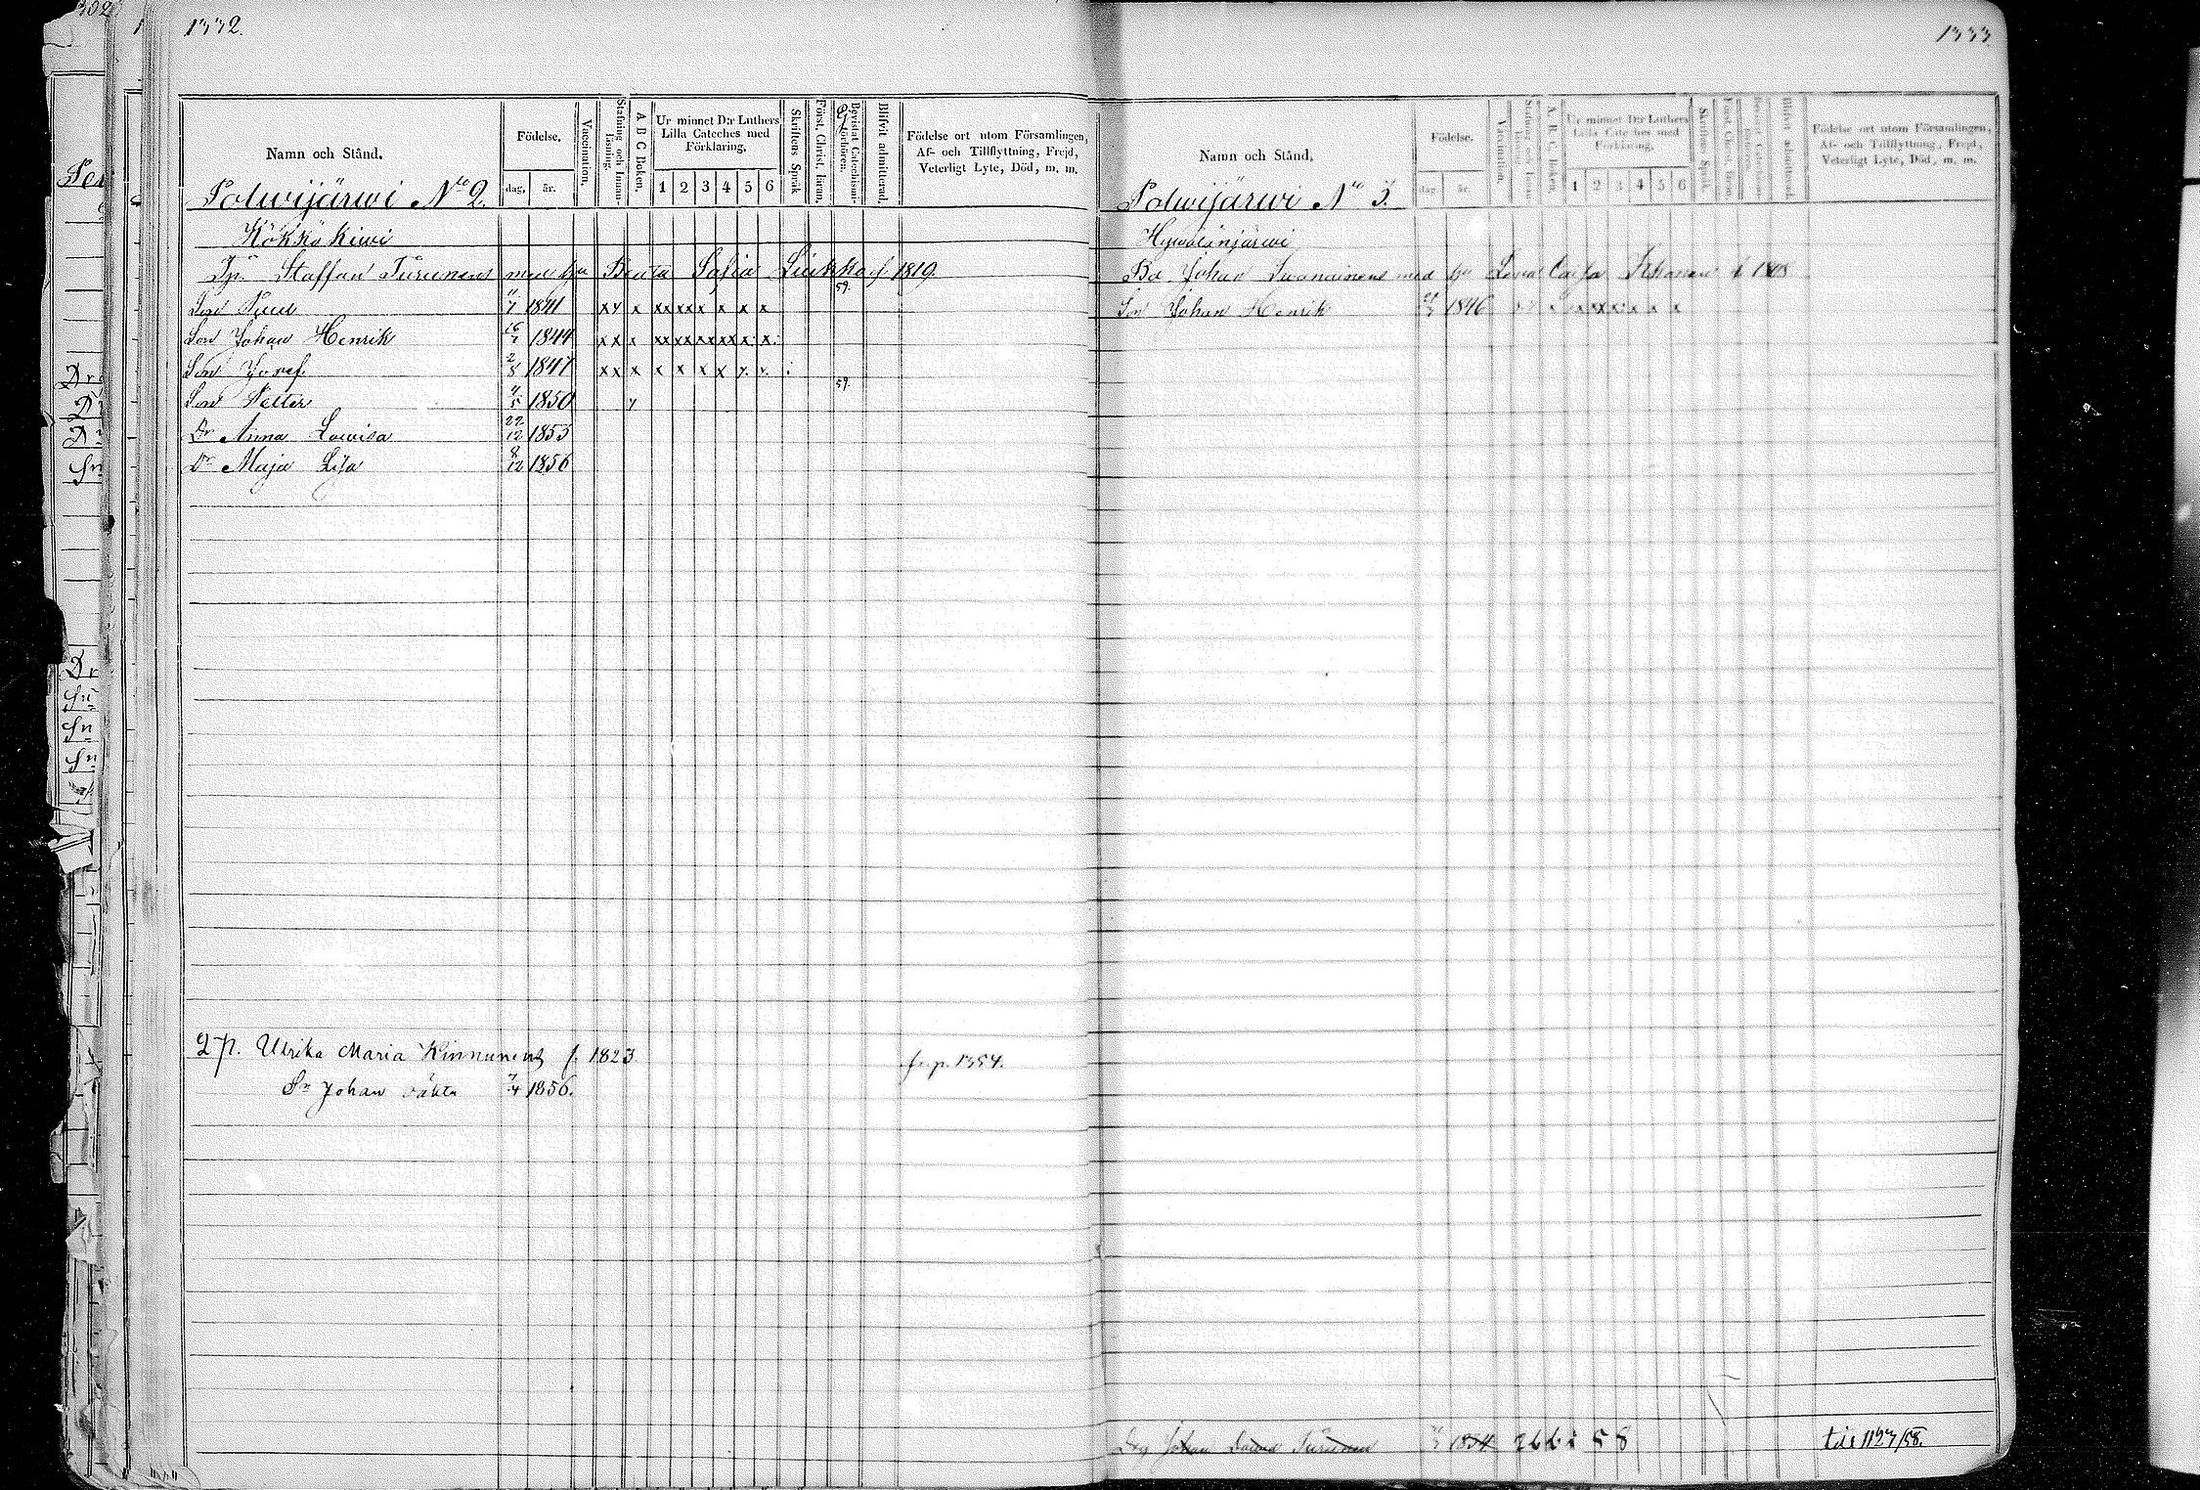 1332.
Namn och Stånd.
Födelse.
dag, år.
Vaccination.
Stafning och Innan-läsning.
A B C Boken.
Ur minnet D:r Luthers Lilla Cateches med Förklaring,
1 2 3 4 5 6
Skriftens Språk
Först. Christ. läran.
Bevistat Catechismi-förhören.
Blifvit admitterad.
Födelse ort utom Församlingen, Af- och Tillflyttning, Frejd, Veterligt Lyte, Död, m. m.
Polwijärwi No 2.
Kökkökiwi
Staffan Turunens med hu Beata Sofia Liukko f 1819.
Son Paul 1841 x x x x x x x x x x 59.
Son Johan Henrik 1844 x x x x x x x x x x
Son Josef 2/8 1847 x x x x x x x x x
Son Petter 1850 59.
Dr Anna Lowisa 22/12 1853
Dr Maja Lisa 8/12 1856
Ulrika Maria Kinnunens f. 1823 fr p. 1354.
Sn Johan oäkta 1856.
1333
Namn och Stånd.
Födelse.
dag år.
Vaccination.
Stafning och Innan-läsning
A. B. C. Boken.
Ur minnet D:r Luthers Lilla Cateches med Förklaring,
1 2 3 4 5 6
Skriftens Språk
Först. Christ. läran
Blifvit admitterad.
Födelse ort utom Församlingen, Af- och Tillflyttning, Frejd, Veterligt Lyte, Död, m. m.
Polwijärwi No 3.
Johan med hu Caisa f
Sn Johan Henrik 1846
Johan Turunen 1854 58 1127/58.